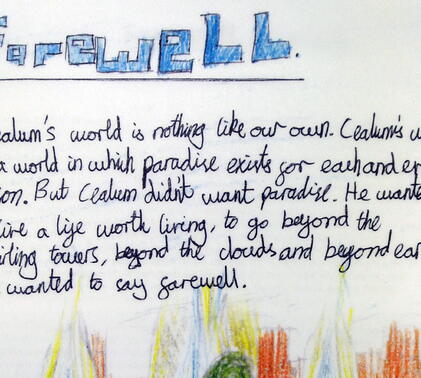 Farewell.
ealum's world is nothing like our own. Cealum's w
a world in which paradise exists for each and ev
son. But Cealum didn't want paradise. He wante
live a life worth living, to go beyond the
irling towers, beyond the clouds and beyond ear
wanted to say farewell.